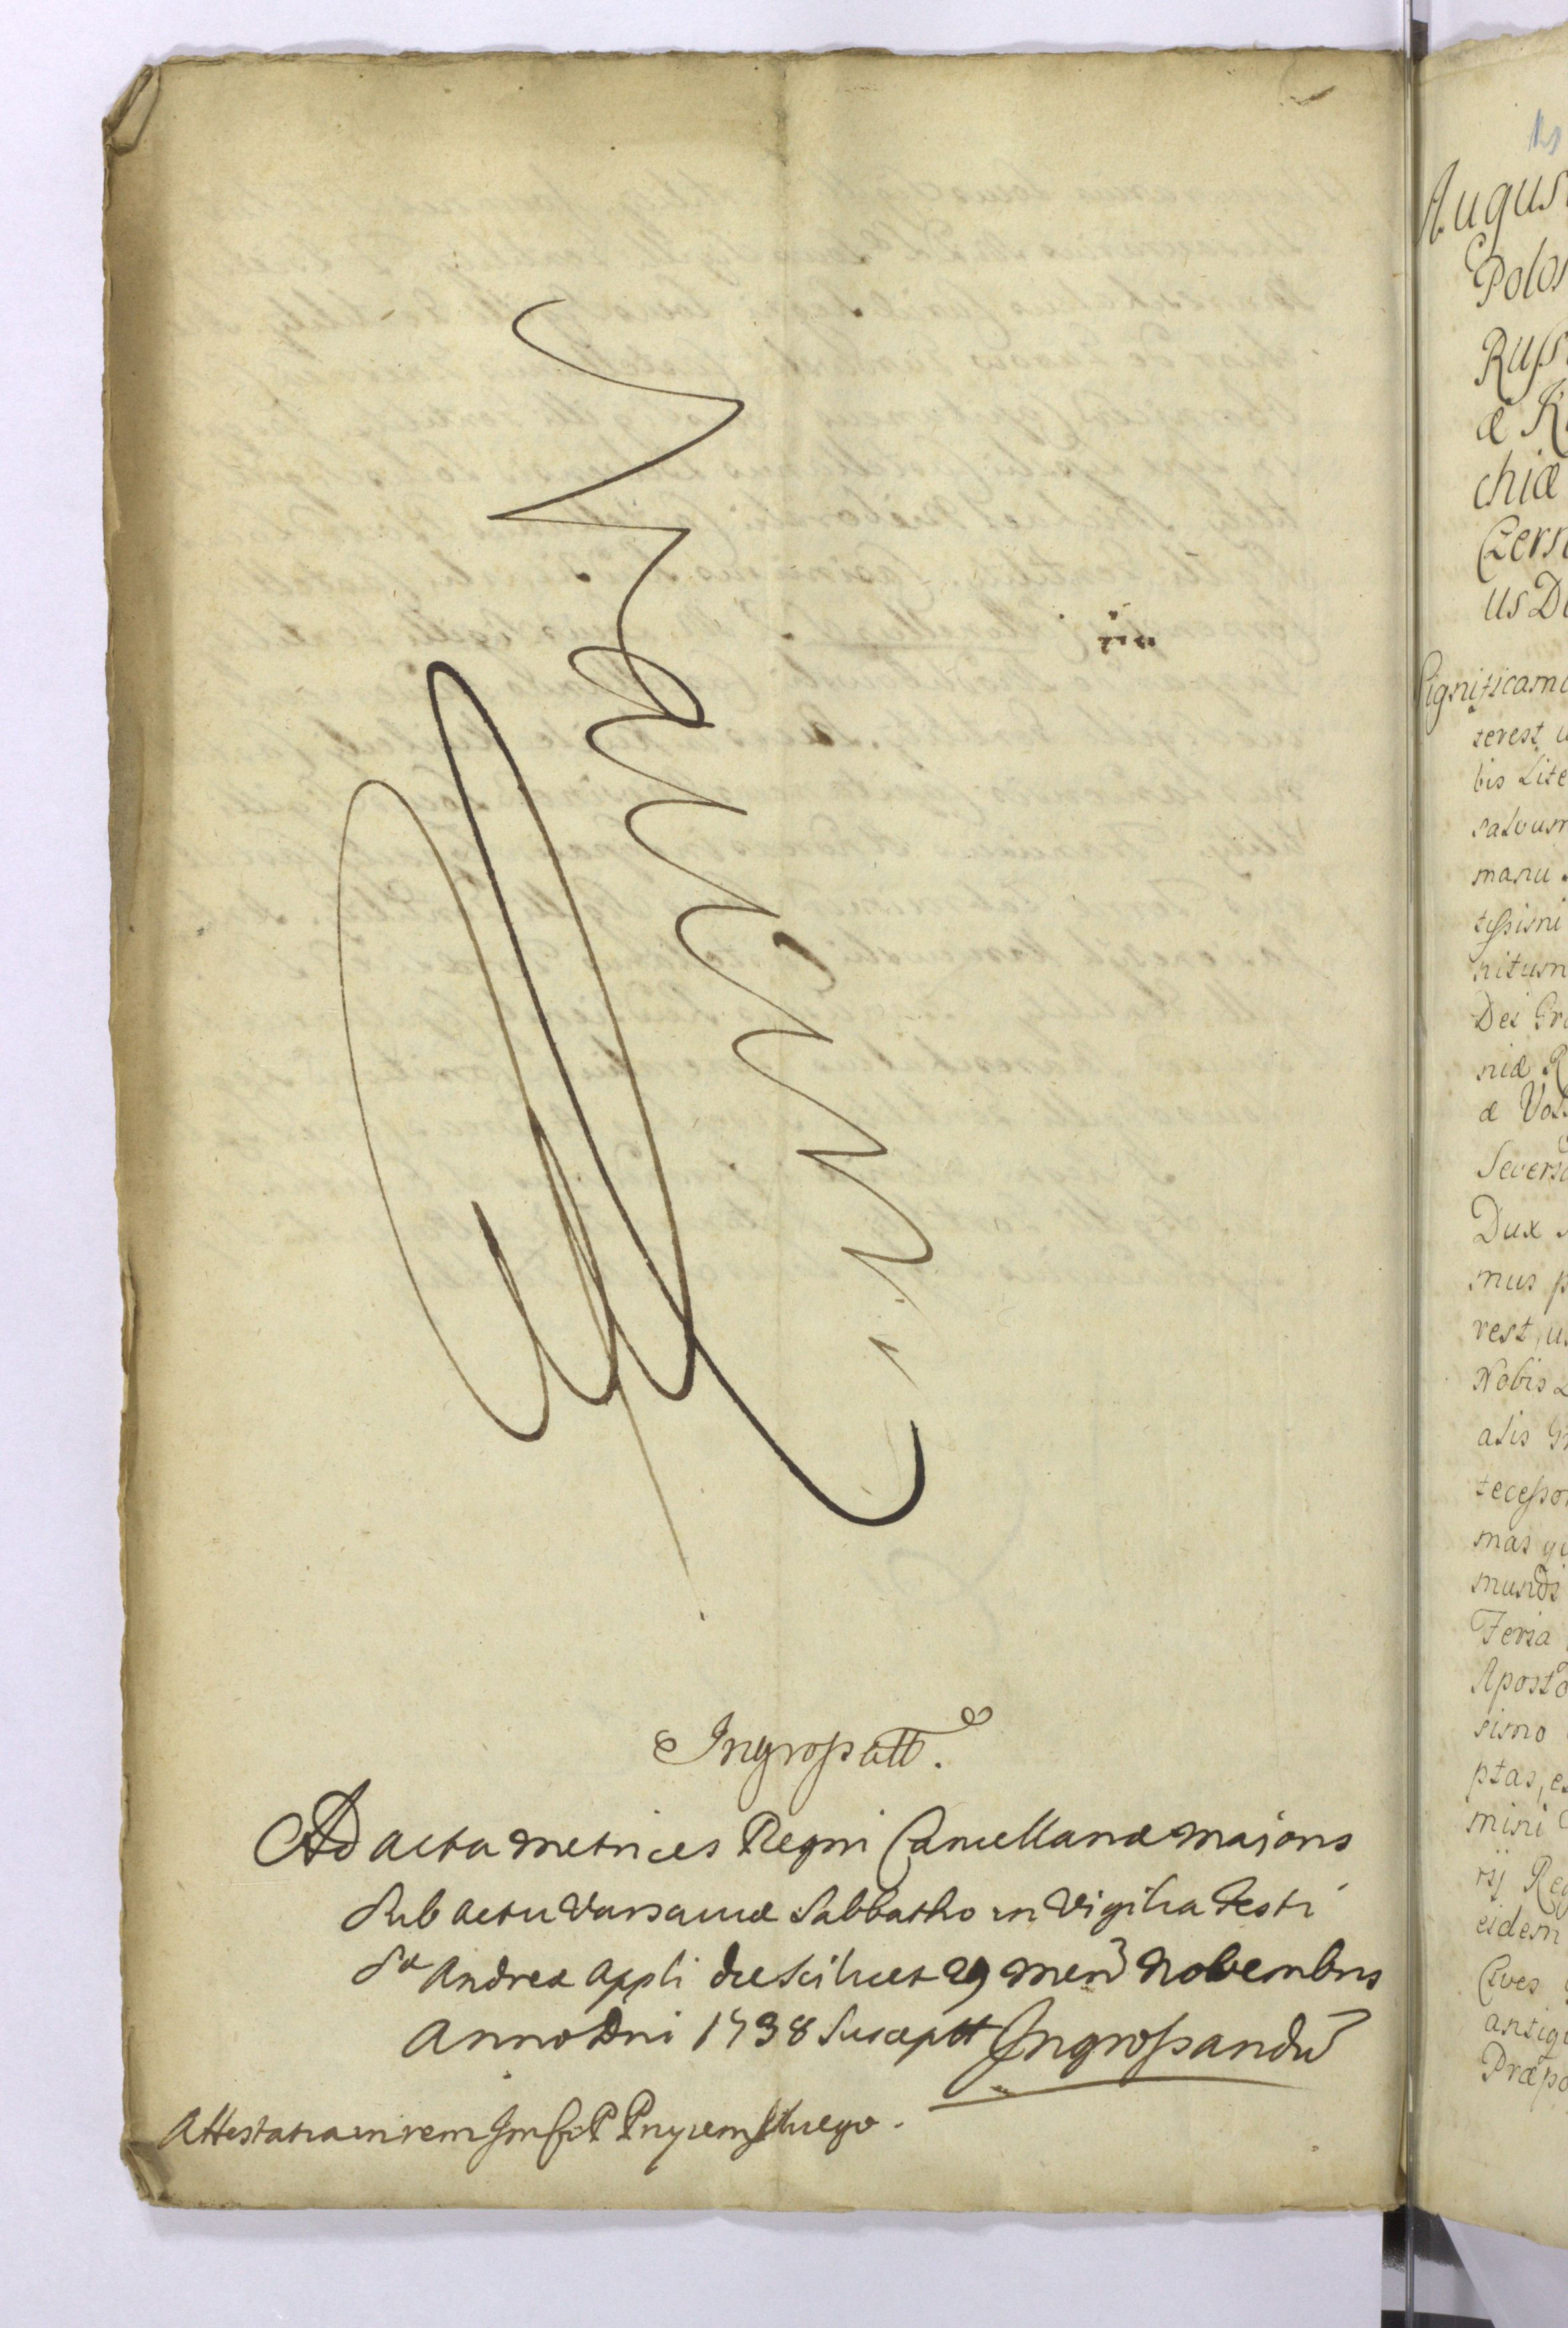 Ingrossatt.
Ad acta metrices Regni Cancellariæ maioris
Sub actu Varsaviæ Sabbatho in Vigilia Festi
Sti Andreæ Appli die Scilicet 29 men̄ Novembris
Anno Dni 1738 Susceptt Ingrossandū
Attestatia in rem Przyiemskiego.
Augus
Polo
Russ
æ K
chiæ
Czern
us D
Significam
terest u
bis Lite
salvum
manu
tissimi
nitum
Dei Gra
niæ R
æ Vol
Severi
Dux
mus p
rest, u
Nobis
alis G
tecessor
mas
mundi
Feria
Aposto
simo
ptas, e
mini
rij Reg
eidem
Cives
antiqu
Præpo